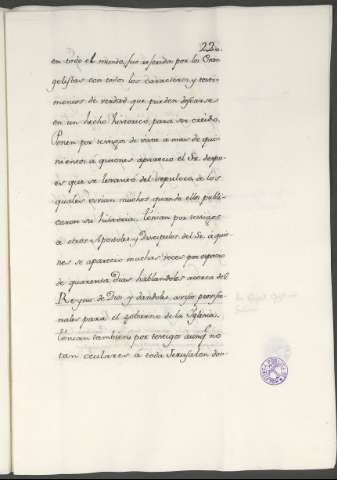 22.
en todo el mundo, fue referida por los Evan
gelistas con todos los caracteres, y testi
monios de verdad que pueden desearse
en un hecho historico para ser creido.
Ponen por testigos de vista a mas de qui
nientos a quienes aparecio el Sr. despu
es que se levantó del sepulcro, de los
quales vivian muchos quando ellos publi
caron su historia. Ponian por testigos
a otros Apostoles y Discipulos del Sr. á quie
nes se aparecio muchas veces por espacio
de quarenta dias hablandoles acerca del
Reyno de Dios, y dandoles avisos
para el gobierno de la Iglesia.
Ponian tambien por testigos aunq. no
tan oculares á toda Jerusalen don-